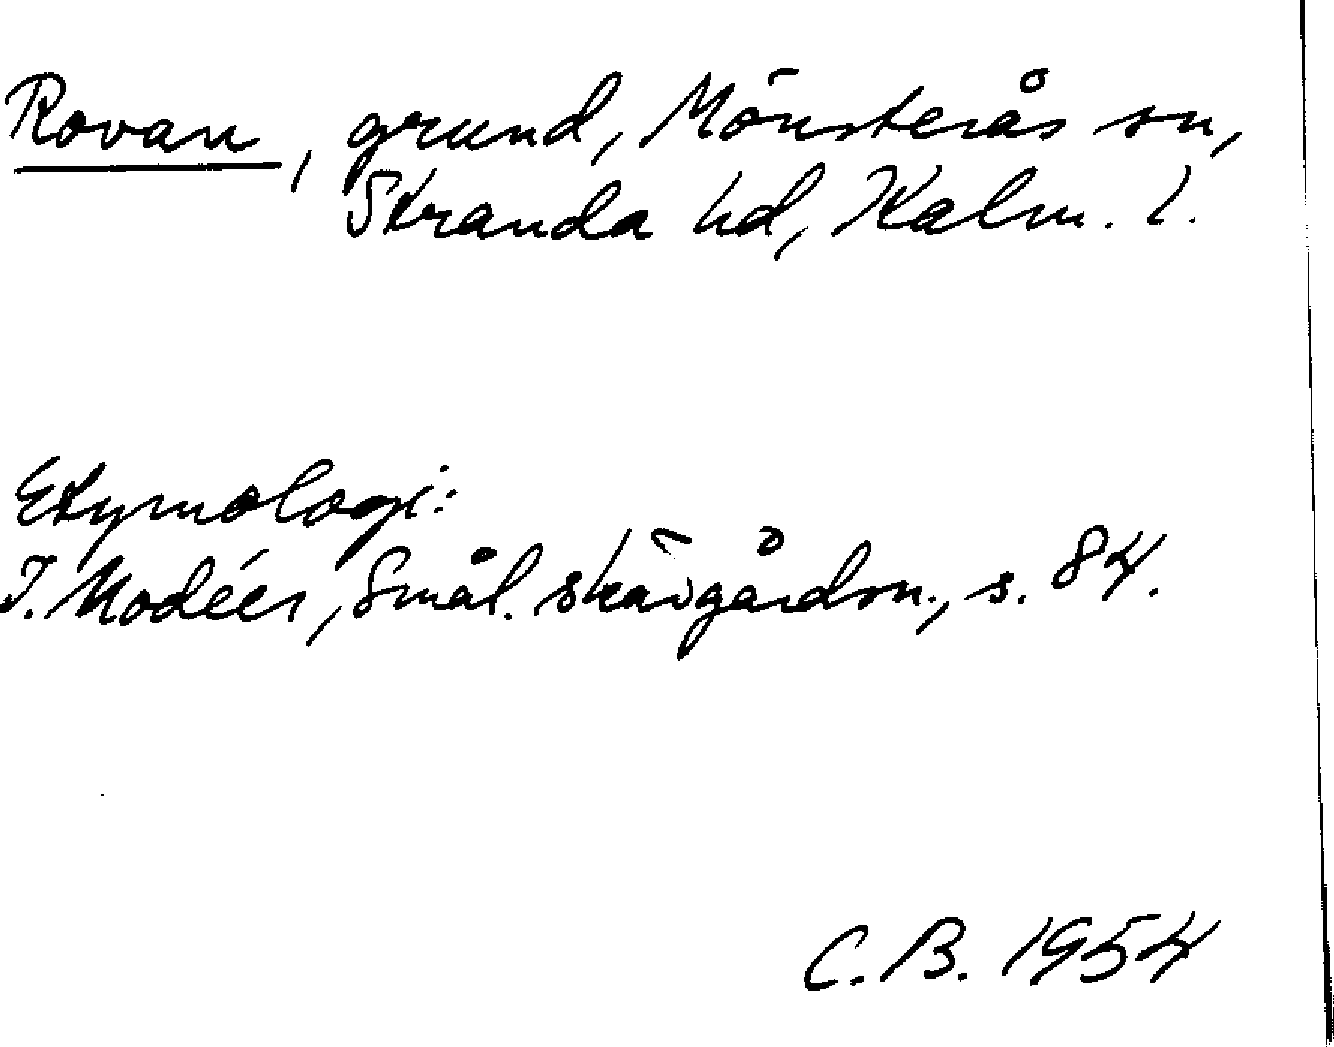 Rovan, grund, Mönsterås sn,
Stranda hd, Kalm. l.
Etymologi:
I. Modéer, Smål. skärgårdsn., s. 84.
C. B. 1954